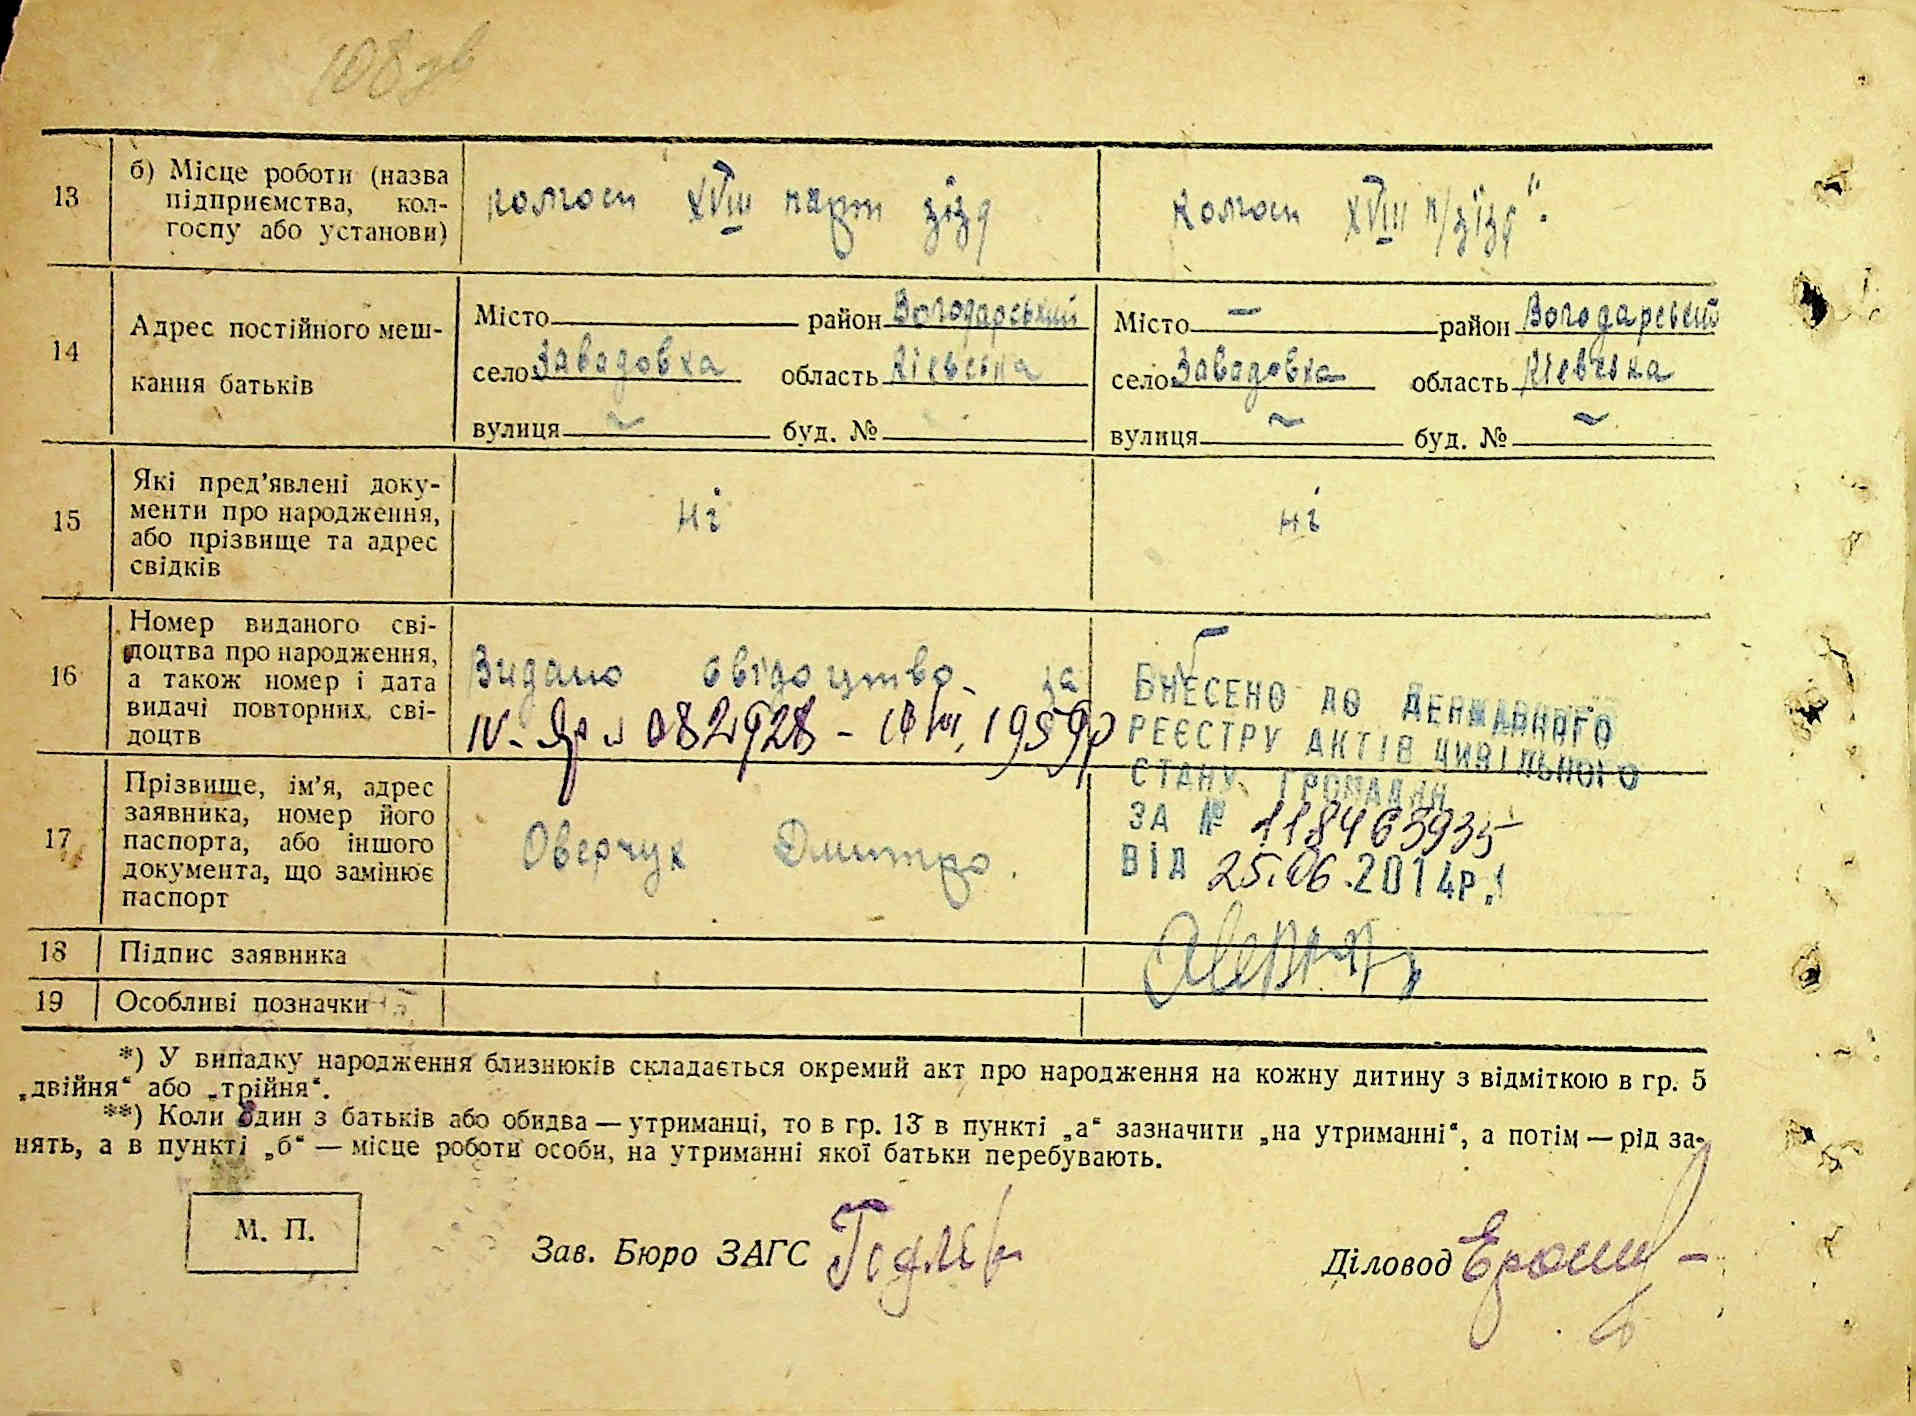 108 зв
13
б) Місце роботи (назва
підприємства, кол-
госпу або установи)
колгосп XVIII парт зізд
колгосп XVIII п/зїзд".
14
Адрес постійного меш-
кання батьків
Місто район Володарський
село Завадовка область Київська
вулиця ~ буд. №
Місто — район Володарський
село Завадовка область Київська
вулиця ~ буд. № ~
15
Які пред’явлені доку-
менти про народження,
або прізвище та адрес
свідків
ні
ні
16
Номер виданого сві-
доцтва про народження,
а також номер і дата
видачі повторних сві-
доцтв
Видано свідоцтво за
IV- Яр № 082928 - 1959р
17
Прізвище, ім’я, адрес
заявника, номер його
паспорта, або іншого
документа, що замінює
паспорт
Оверчук Дмитро.
ВНЕСЕНО ДО ДЕРЖАВНОГО
РЕЄСТРУ АКТІВ ЦИВІЛЬНОГО
СТАНУ ГРОМАДЯН
ЗА № 118463935
ВІД 25.06.2014р.
18
Підпис заявника
19
Особливі позначки
*) У випадку народження близнюків складається окремий акт про народження на кожну дитину з відміткою в гр. 5
„двійня“ або „трійня“.
**) Коли один з батьків або обидва — утриманці, то в гр. 13 в пункті „а“ зазначити „на утриманні“, а потім — рід за-
нять, а в пункті „б“ — місце роботи особи, на утриманні якої батьки перебувають.
М. П.
Зав. Бюро ЗАГС
Діловод